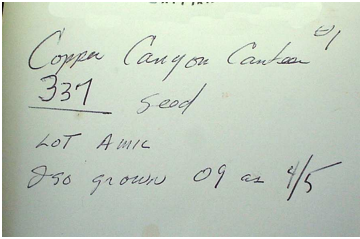 Copper Canyon Canteen #1
337 seed
LOT AMIC
grown 09 as 4/5